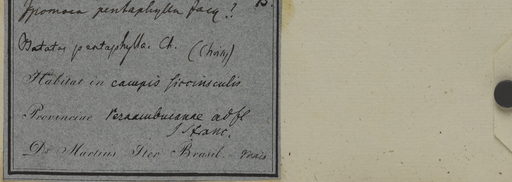 Ipomoea pentaphylla Jacq.? B.
Batatas pentaphylla. Ch. (Choisy)
Habitat in campis siccinsculis
Provinciae Pernambucanae ad fl
S franc.
Dr. Martius Iter Brasil.